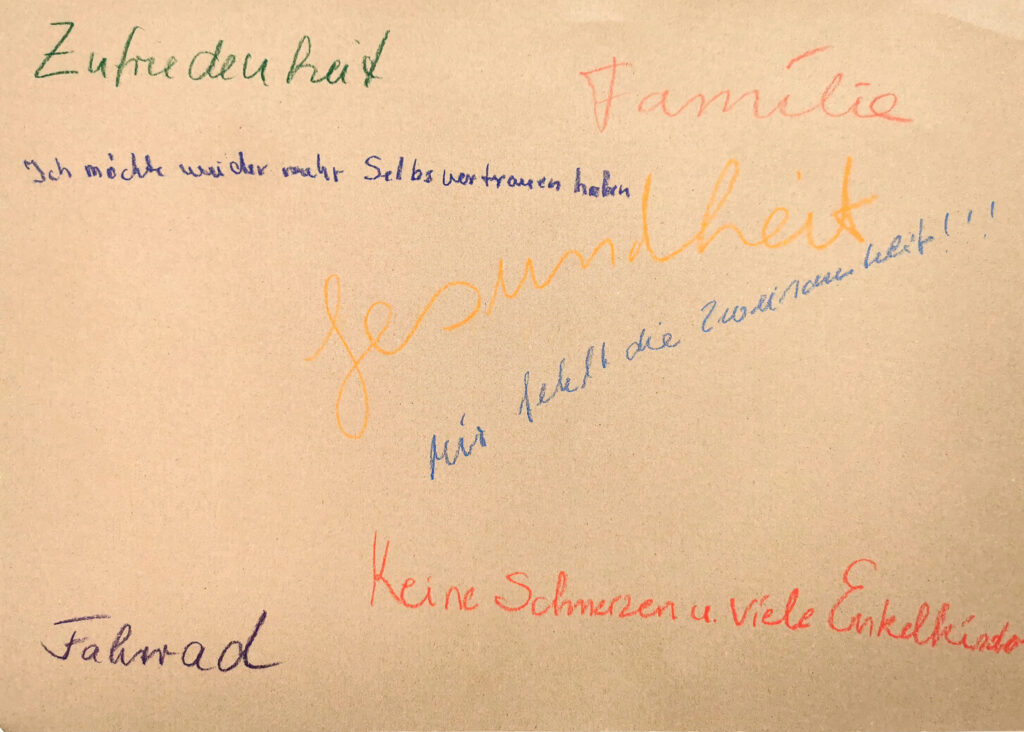 Zufriedenheit
Familie
Ich möchte wieder mehr Selbsvertrauen haben
Gesundheit
Mir fehlt die Zweisamkeit!!!
Keine Schmerzen u. viele Enkelkinder
Fahrrad